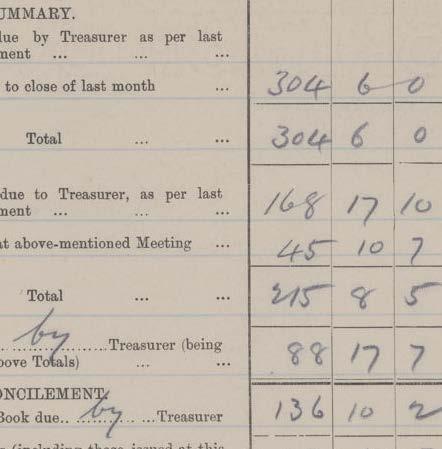 UMMARY.
due by Treasurer as per last
ment ... ... ...
to close of last month ... 304 6 0
Total ... ... 304 6 0
due to Treasurer, as per last
ment ... ... ... 168 17 10
at above-mentioned Meeting ... 45 10 7
Total ... ... 215 8 5
by Treasurer (being
bove Totals) ... ... 88 17 7
ONCILEMENT.
Book due.. by ... Treasurer 136 10 2
(including those issued at this